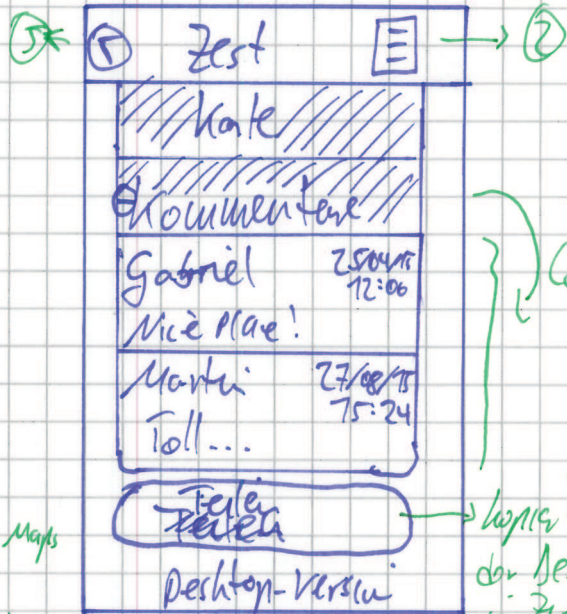 5*
5 Zest
2
Karte
Kommentare
Gabriel 25/04/15
12:06
Nice Place!
Martin 27/08/15
15:24
Toll...
Teilen
Maps
Desktop-Version